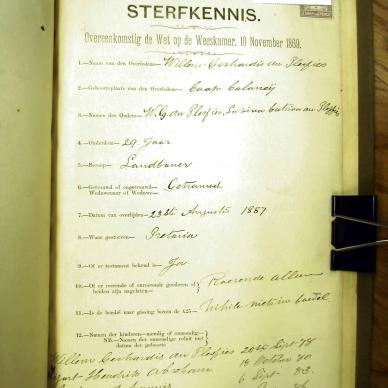 STERFKENNIS.
Overeenkomstig de Wet op de Weeskamer, 10 November 1869.
1.—Naam van den Overleden— Willem Gerhardis du Plessies
2.—Geboorteplaats van den Overleden— Caap Coloney
3.—Namen des Ouders— W. G. du Plessies,
4.—Ouderdom— 29 Jaar
5.—Beroep— Landbouer
6.—Getrouwd of ongetrouwd
Weduwenaar of Weduwe— Getrouwd
7.—Datum van overlijden— 23 ste Augustus 1887
8.—Waar gestorven— Pretoria
9.—Of er testament bekend is— Ja
10.—Of er roerende of onroerende goederen of
beiden zijn nagelaten— Roerende Alleen
11.—Is de boedel naar gissing boven de £25—
12.—Namen der kinderen—mondig of onmondig—
NB.—Namen der onmondige
datum der geboorte
Willem Gerhardis du Plessies 20 Sept 78
Hendrik Abraham 14 October 80
6 Sept 83